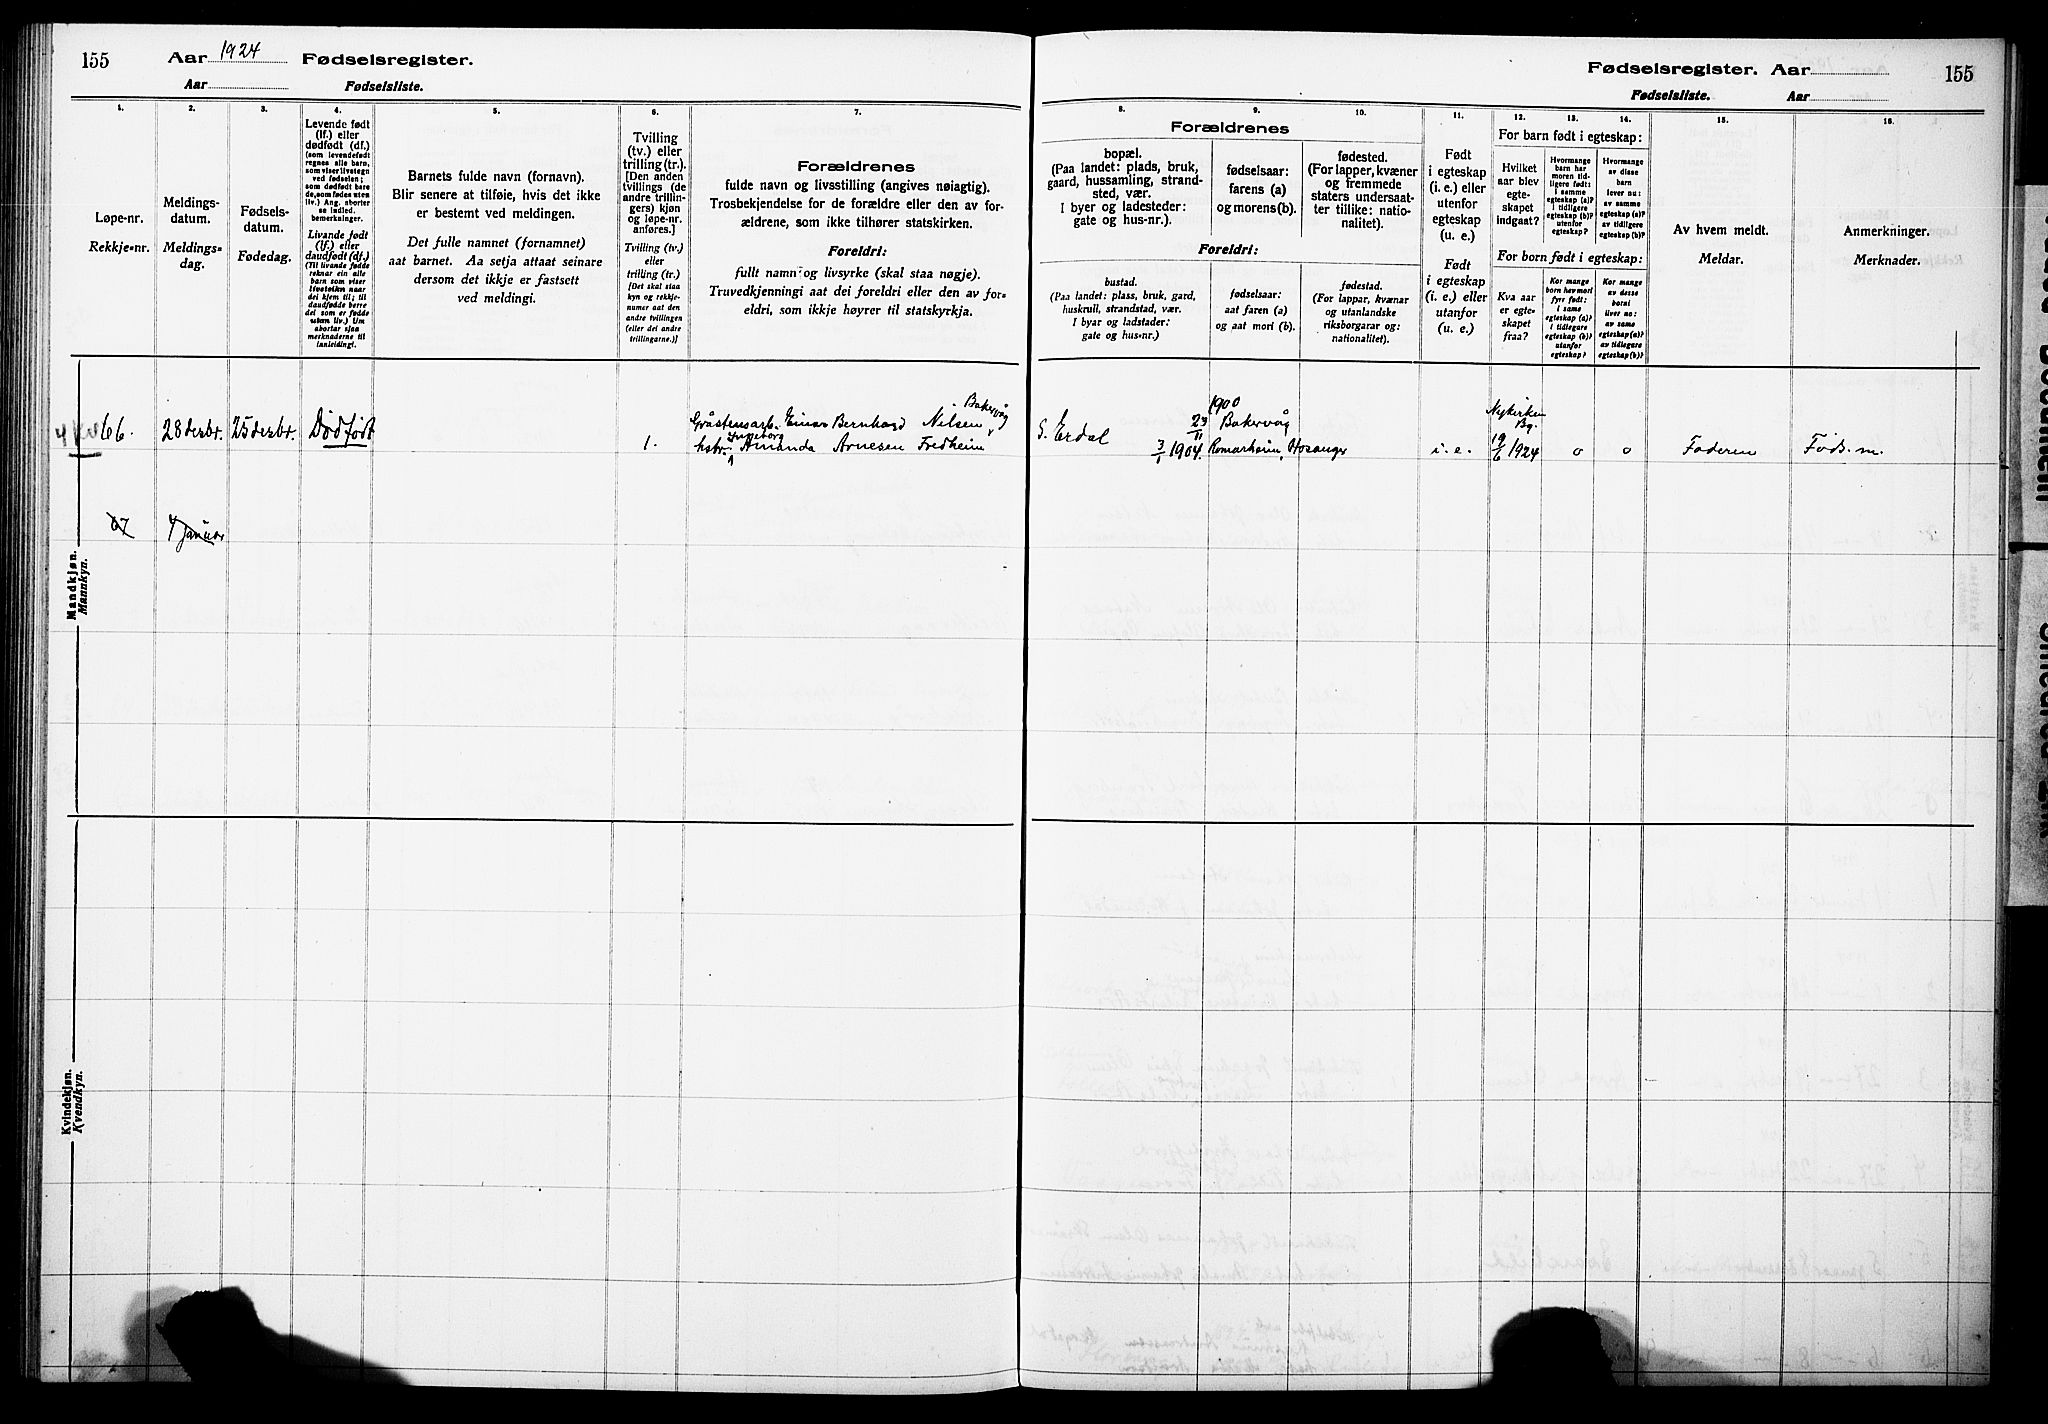 155 Aar 1924 Fødselsregister.
Aar Fødselsliste.
1.
2.
3.
4.
5.
6.
7.
Løpe-nr.
Rekkje-nr.
Meldings-
datum.
Meldings-
dag.
Fødsels-
datum.
Fødedag.
Levende født
(lf.) eller
dødfødt (df.)
(som levendefødt
regnes alle barn,
som viser livstegn
ved fødselen;
som dødfødt bare
de, som fødes uten
liv.) Ang. aborter
se indled.
bemerkninger.
Livande født
(lf.) eller
daudfødt (df.)
(Til livande fødde
reknar ein alle
barn som viser
livsteikn naar
dei kjem til; til
daudfødde berre
dei som er fødde
utan liv.) Um
abortar sjaa
merknaderne til
innleiding!.
Barnets fulde navn (fornavn).
Blir senere at tilføie, hvis det ikke
er bestemt ved meldingen.
Det fulle namnet (fornamnet)
aat barnet. Aa setja attaat seinare
dersom det ikkje er fastsett
ved meldingi.
Tvilling
(tv.) eller
trilling (tr.).
[Den anden
tvillings (de
andre trillin-
gers) kjøn
og løpe-nr.
anføres.]
Tvilling (tv.)
eller
trilling (tr.)
[Det skal staa
kyn og rekkje-
numer aat den
andre tvillingen
(eller dei andre
trillingarne.)]
Forældrenes
fulde navn og livsstilling (angives nøiagtig).
Trosbekjendelse for de forældre eller den av for-
ældrene, som ikke tilhører statskirken.
Foreldri:
fullt namn og livsyrke (skal staa nøgje).
Truvedkjenningi aat dei foreldri eller den av for-
eldri, som ikkje høyrer til statskyrkja.
66. 28 desbr. 25 desbr. Dødfødt
1.
Bakervåg
Gråstensarb. Einar Bernhard Nilsen
Ingeborg
hstr. Amanda Arnesen Fredheim
67 4 januar
Mandkjøn.
Mannkyn.
Kvindekjøn.
Kvendkyn.
Fødselsregister. Aar 155
Fødselsliste. Aar
8.
9.
10.
11.
12.
13.
14.
15.
16.
Forældrenes
bopæl.
(Paa landet: plads, bruk,
gaard, hussamling, strand-
sted, vær.
I byer og ladesteder:
gate og hus-nr.).
fødselsaar:
farens (a)
og morens (b).
fødested.
(For lapper, kvæner
og fremmede
staters undersaat-
ter tillike: natio-
nalitet).
Foreldri:
bustad.
(Paa landet: plass, bruk, gard,
huskrull, strandstad, vær.
I byar og ladstader:
gate og hus-nr.)
fødselsaar:
aat faren (a)
og aat mori (b).
fødestad.
(For lappar, kvænar
og utanlandske
riksborgarar og:
nationalitet).
Født
i egteskap
(i. e.) eller
utenfor
egteskap
(u. e.)
Født
i egteskap
(i. e.) eller
utanfor
(u. e.)
For barn født i egteskap:
Hvilket
aar blev
egte-
skapet
indgaat?
Hvormange
barn har
moren tid-
ligere født:
i samme
egteskap (a)?
i tidligere
egteskap (b)?
utenfor
egteskap?
Hvormange
av disse
barn
lever nu:
av samme
egteskap (a)?
av tidligere
egteskap (b)?
For born født i egteskap:
Kva aar
er egte-
skapet
fraa?
Kor mange
born hev mori
fyrr født:
i same
egteskap (a)?
i tidlegare
egteskap (b)?
utanfor
egteskap?
Kor mange
av desse
borni
liver no:
av same
egteskap (a)?
av tidlegare
egteskap (b)?
Av hvem meldt.
Meldar.
Anmerkninger.
Merknader.
S. Erdal
1900
23/11 Bakervåg
3/1 1904. Romarheim, Hosanger
i. e.
Nykirken
Bg.
19/6 1924
o
o
Faderen
Føds. m.